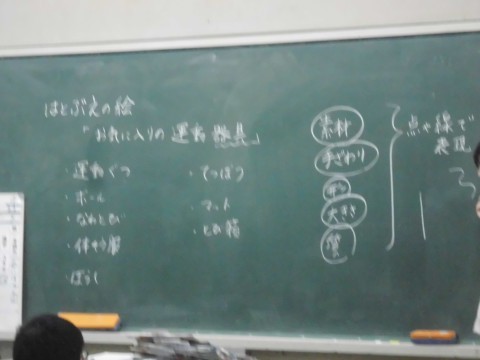 はとぶえの絵
「お気に入りの運動用具」
・運動ぐつ
・ボール
・なわとび
・体そう服
・ぼうし
・てつぼう
・マット
・とび箱
素材
手ざわり
大きさ
点や線で
表現